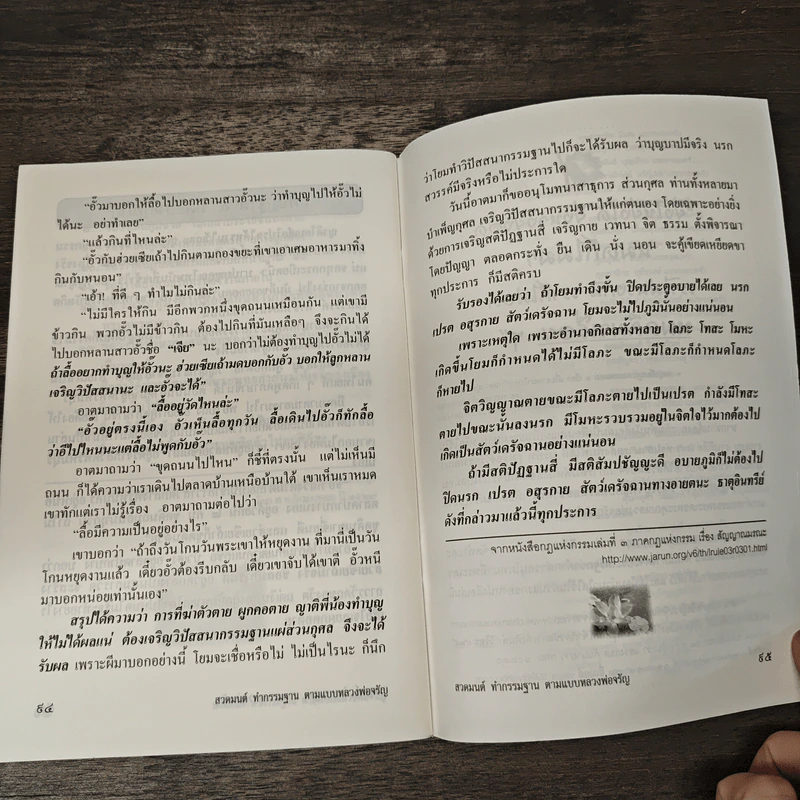 “อั๊วมาบอกให้ลื้อไปบอกหลานสาวอั๊วนะ ว่าทำบุญไปให้อั๊วไม่
ได้นะ อย่าทำเลย”
“แล้วกินที่ไหนล่ะ”
“อั๊วกับฮ่วยเซียเถ้าไปกินตามกองขยะที่เขาเอาเศษอาหารมาทิ้ง
กินกับหนอน”
“เอ้า! ที่ดี ๆ ทำไมไม่กินล่ะ”
“ไม่มีใครให้กิน มีอีกพวกหนึ่งขุดถนนเหมือนกัน แต่เขามี
ข้าวกิน พวกอั๊วไม่มีข้าวกิน ต้องไปกินที่มันเหลือๆ จึงจะกินได้
ไปบอกหลานสาวอั๊วชื่อ “เจีย” นะ บอกว่าไม่ต้องทำบุญไปอั๊วไม่ได้
ถ้าลื้ออยากทำบุญให้อั๊วนะ ฮ่วยเซียเถ้ามดบอกกับอั๊ว บอกให้ลูกหลาน
เจริญวิปัสสนานะ และอั๊วจะได้”
อาตมาถามว่า “ลื้ออยู่วัดไหนล่ะ”
“อั๊วอยู่ตรงนี้เอง อั๊วเห็นลื้อทุกวัน ลื้อเดินไปอั๊วก็ทักลื้อ
ว่าอีไปไหนนะแต่ลื้อไม่พูดกับอั๊ว”
อาตมาถามว่า “ขุดถนนไปไหน” ก็ชี้ที่ตรงนั้น แต่ไม่เห็นมี
ถนน ก็ได้ความว่าเราเดินไปตลาดบ้านเหนือบ้านใต้ เขาเห็นเราหมด
เขาทักแต่เราไม่รู้เรื่อง อาตมาถามต่อไปว่า
“ลื้อมีความเป็นอยู่อย่างไร”
เขาบอกว่า “ถ้าถึงวันโกนวันพระเขาให้หยุดงาน ที่มานี่เป็นวัน
โกนหยุดงานแล้ว เดี๋ยวอั๊วต้องรีบกลับ เดี๋ยวเขาจับได้เขาตี อั๊วหนี
มาบอกหน่อยเท่านั้นเอง”
สรุปได้ความว่า การที่ฆ่าตัวตาย ผูกคอตาย ญาติพี่น้องทำบุญ
ให้ไม่ได้ผลแน่ ต้องเจริญวิปัสสนากรรมฐานแผ่ส่วนกุศล จึงจะได้
รับผล เพราะผีมาบอกอย่างนี้ โยมจะเชื่อหรือไม่ ไม่เป็นไรนะ ก็นึก
สวดมนต์ ทำกรรมฐาน ตามแบบหลวงพ่อจรัญ
๙๔
ว่าโยมทำวิปัสสนากรรมฐานไปก็จะได้รับผล ว่าบุญบาปมีจริง นรก
สวรรค์มีจริงหรือไม่ประการใด
วันนี้อาตมาก็ขออนุโมทนาสาธุการ ส่วนกุศล ท่านทั้งหลายมา
บำเพ็ญกุศล เจริญวิปัสสนากรรมฐานให้แก่ตนเอง โดยเฉพาะอย่างยิ่ง
ด้วยการเจริญสติปัฏฐานสี่ เจริญกาย เวทนา จิต ธรรม ตั้งพิจารณา
โดยปัญญา ตลอดกระทั่ง ยืน เดิน นั่ง นอน จะคู้เขียดเหยียดขา
ทุกประการ ก็มีสติครบ
รับรองได้เลยว่า ถ้าโยมทำถึงขั้น ปิดประตูอบายได้เลย นรก
เปรต อสุรกาย สัตว์เดรัจฉาน โยมจะไม่ไปภูมินั้นอย่างแน่นอน
เพราะเหตุใด เพราะอำนาจกิเลสทั้งหลาย โลภะ โทสะ โมหะ
เกิดขึ้นโยมก็กำหนดได้ไม่มีโลภะ ขณะมีโลภะก็กำหนดโลภะ
ก็หายไป
จิตวิญญาณตายขณะมีโลภะตายไปเป็นเปรต กำลังมีโทสะ
ตายไปขณะนั้นลงนรก มีโมหะรวบรวมอยู่ในจิตใจไว้มากต้องไป
เกิดเป็นสัตว์เดรัจฉานอย่างแน่นอน
ถ้ามีสติปัฏฐานสี่ มีสติสัมปชัญญะดี อบายภูมิก็ไม่ต้องไป
ปิดนรก เปรต อสุรกาย สัตว์เดรัจฉานทางอายตนะ ธาตุอินทรีย์
ดังที่กล่าวมาแล้วนี้ทุกประการ
จากหนังสือกฎแห่งกรรมเล่มที่ ๓ ภาคกฎแห่งกรรม เรื่อง สัญญาณมรณะ
http://www.jarun.org/v6/th/lrule03r0301.html
๙๕
สวดมนต์ ทำกรรมฐาน ตามแบบหลวงพ่อจรัญ